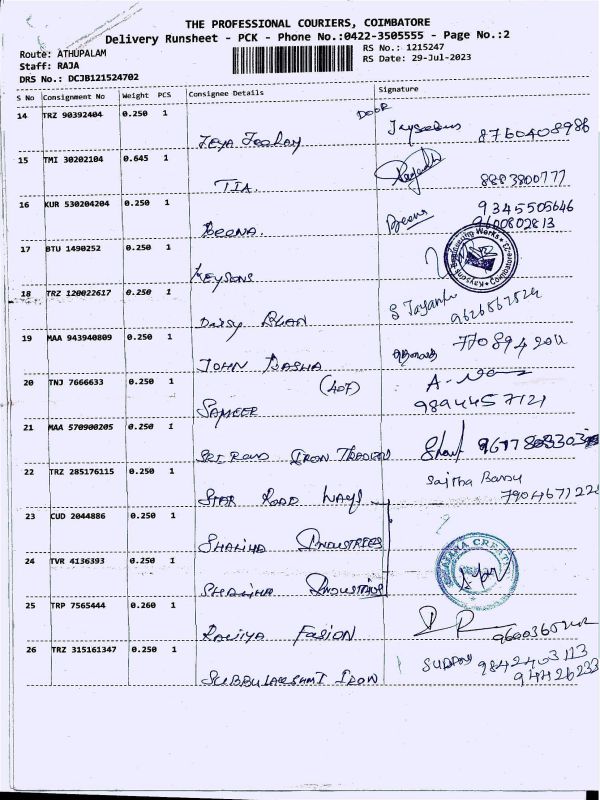 THE PROFESSIONAL COURIERS, COIMBATORE
Delivery Runsheet - PCK - Phone No.:0422-3505555 - Page No.:2
Route: ATHUPALAM
RS No.: 1215247
Staff: RAJA
RS Date: 29-Jul-2023
DRS No.: DCJB121524702
S No Consignment No Weight PCS Consignee Details Signature
14 TRZ 90392404 0.250 1 DOOR
8760408986
15 TMI 30202104 0.645 1
TIA. 8883800777
16 KUR 530204204 0.250 1 Beena 9345505646
BEENA 9600802813
17 BTU 1490252 0.250 1
KEYSONS
18 TRZ 120022617 0.250 1 S Jayanthi
DAISY BHAN
19 MAA 943940809 0.250 1
JOHN BASHA
20 TNJ 7666633 0.250 1 (407)
SAMEER 9894457121
21 MAA 570900205 0.250 1
SRI RAM IRON TRADERS
22 TRZ 285176115 0.250 1 Sajitha Banu
STAR ROAD WAYS
23 CUD 2044886 0.250 1
SHALIHA INDUSTRIES
24 TVR 4136393 0.250 1
SHALIHA INDUSTRIES
25 TRP 7565444 0.260 1
RAWIYA FASION
26 TRZ 315161347 0.250 1 9842403113
SUBBULAKSHMI IRON 94426233